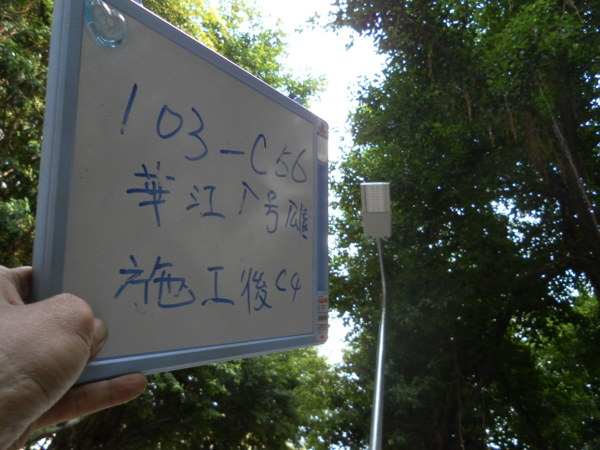 103-C56
華江八号公園
施工後C4